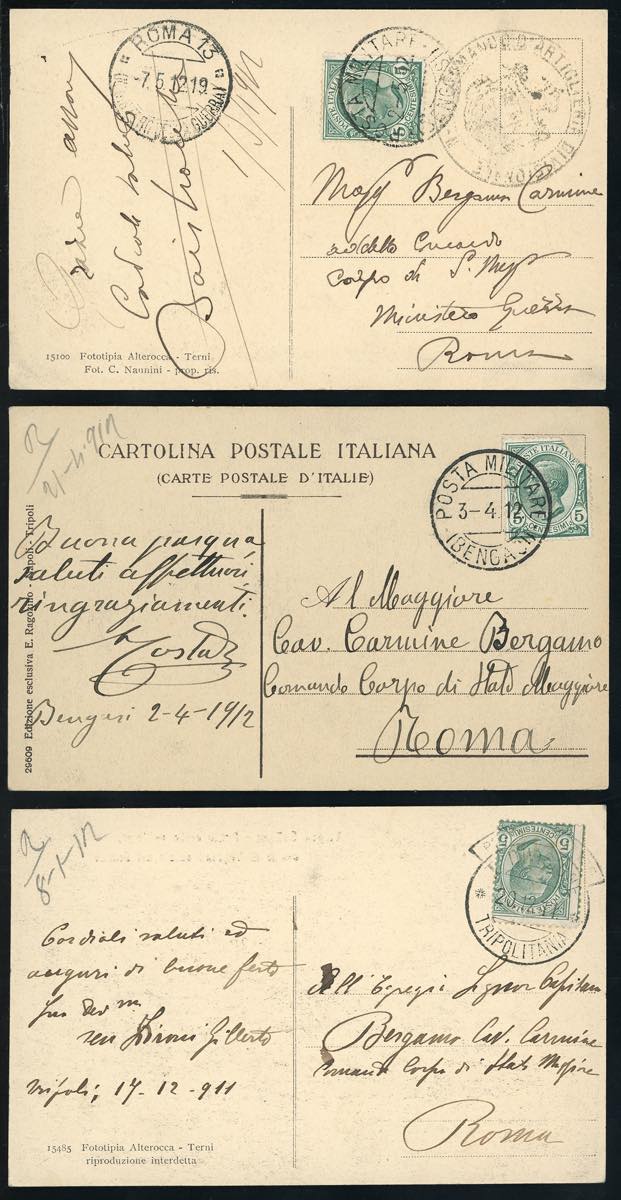 ROMA 13
-7.5.12 19
POSTA MILITARE
POSTE ITALIANE
5 CENTESIMI 5
COMANDO D'ARTIGLIERIA DIVISIONALE
Cordiali saluti
1/5/912
Magg Bergamo Carmine
addetto Comando
Corpo di S. Magg
Ministero Guerra
Roma
15100 Fototipia Alterocca - Terni
Fot. C. Naunini - prop. ris.
R/
21-4-912
CARTOLINA POSTALE ITALIANA
(CARTE POSTALE D'ITALIE)
POSTA MILITARE
3-4.12
(BENGASI)
POSTE ITALIANE
5 CENTESIMI 5
29609 Edizione esclusiva E. Ragozino - Napoli-Tripoli
Buona pasqua
saluti affettuosi,
ringraziamenti.
Costa
Bengasi 2-4-1912
Al Maggiore
Cav. Carmine Bergamo
Comando Corpo di Stato Maggiore
Roma
R/
8-1-12
TRIPOLITANIA
POSTE ITALIANE
5 CENTESIMI 5
Cordiali saluti ed
auguri di buone feste
Suo Dev mo
Gilberto
Tripoli, 17-12-911
All'Egregio Signor Capitano
Bergamo Cav. Carmine
Comando Corpo di Stato Maggiore
Roma
15485 Fototipia Alterocca - Terni
riproduzione interdetta